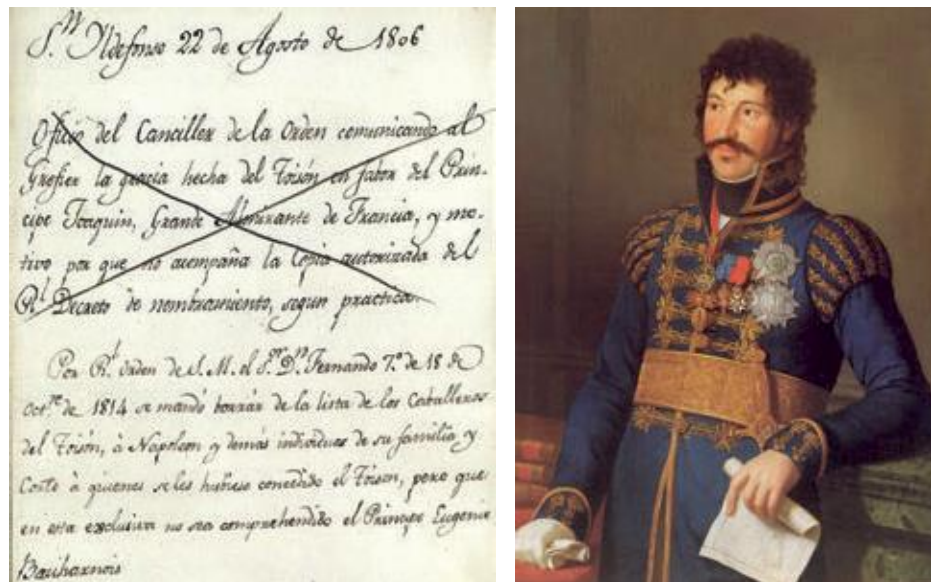 S.ⁿ Yldefonso 22 de Agosto de 1806
Oficio del Canciller de la Orden comunicando al
Grefier la gracia hecha del Toisón en fabor del Prin-
cipe Joaquin, Grande Almirante de Francia, y mo-
tivo por que no acompaña la Copia autorizada del
R.ˡ Decreto de nombramiento, segun practica.
Por R.ˡ orden de S. M. el S.ᵒʳ D.ⁿ Fernando 7.º de 18 de
Oct.ʳᵉ de 1814 se mandó borrár de la lista de los Caballeros
del Toisón, à Napoleon y demás individuos de su familia y
Corte à quienes se les hubiese concedido el Toison, pero que
en esta exclusiva no sea comprehendido el Principe Eugenio
Bauharnois